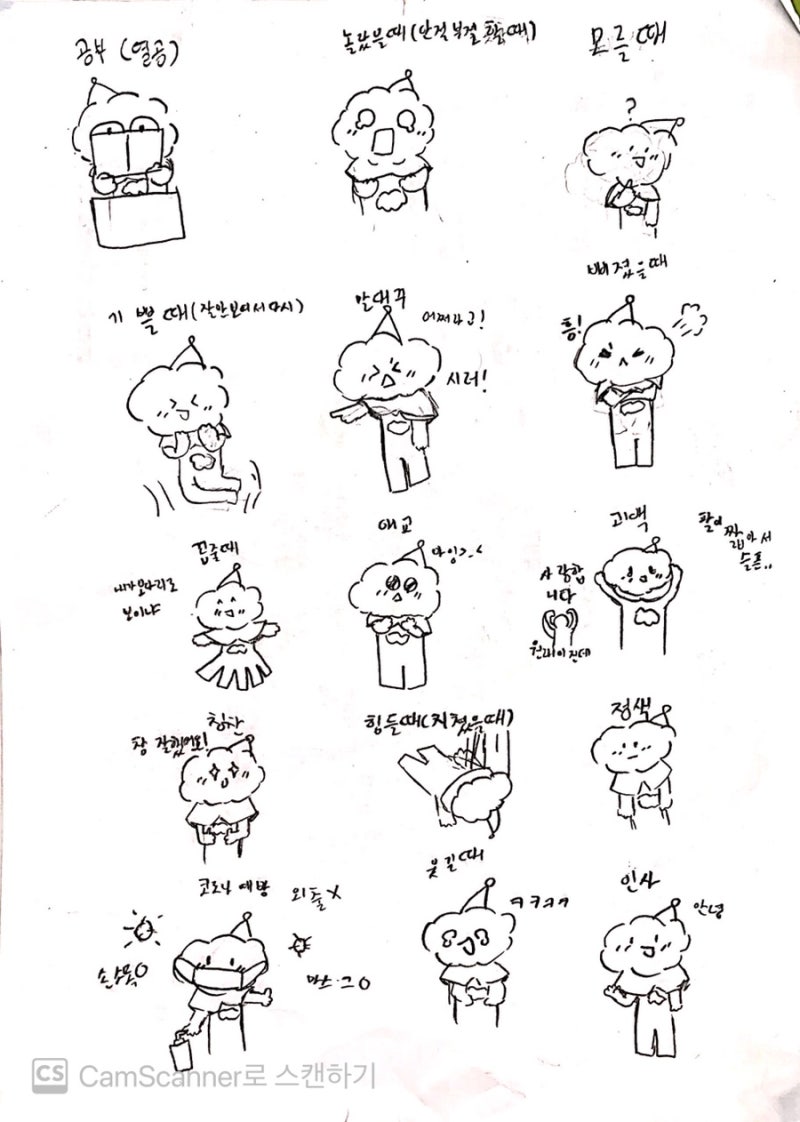 공부 (열공)
놀랐을때 (안절부절 할때)
모를 때
?
기쁠때 (잘안보여서 다시)
말대꾸
어쩌라고!
시러!
삐졌을때
흥!
꼽줄때
내가모자리로
보이냐
애교
고백
팔이
짧아서
슬픈..
사랑합
니다
원래이건데
칭찬
참 잘했어요!
힘들때(지쳤을때)
정색
코로나 예방
외출X
손소독O
마스크O
웃길때
ㅋㅋㅋㅋ
인사
안녕
CS CamScanner로 스캔하기